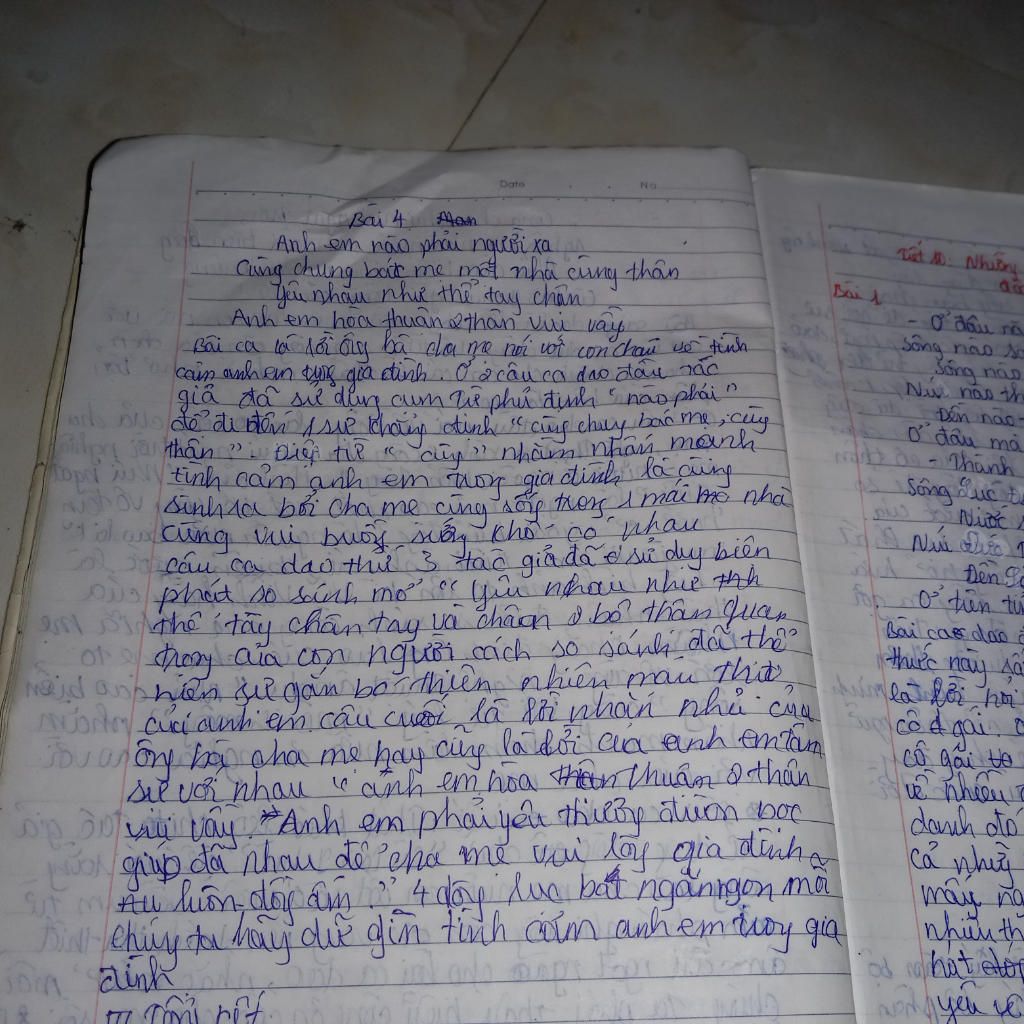 Date No
Bài 4
Anh em nào phải người xa
Cùng chung bác mẹ một nhà cùng thân
Yêu nhau như thể tay chân
Anh em hòa thuận 2 thân vui vầy
Bài ca là lời ông bà cha mẹ nói với con cháu về tình
cảm anh em trong gia đình. Ở 2 câu ca dao đầu tác
giả đã sử dụng cụm từ phủ định "nào phải"
để đi đến 1 sự khẳng định "cùng chung bác mẹ, cùng
thân". Điệp từ "cùng" nhằm nhấn mạnh
tình cảm anh em trong gia đình là cùng
sinh ra bởi cha mẹ cùng sống trong 1 mái nhà
cùng vui buồn sướng khổ có nhau
câu ca dao thứ 3 tác giả đã sử dụ biện
pháp so sánh "Yêu nhau như
thể tay chân tay và chân 2 bộ thân quan
trọng của con người cách so sánh đã thể
hiện sự gắn bó thiên nhiên máu thịt
của anh em câu cuối là lời nhắn nhủ của
ông bà cha mẹ hay cũng là lời của anh em tâm
sự với nhau "anh em hòa thuận 2 thân
vui vầy. Anh em phải yêu thương đùm bọc
giúp đỡ nhau để cha mẹ vui lòng gia đình
luôn đồng ấm" 4 dòng lục bát ngắn ngọn mà
chúng ta hãy dữ gìn tình cảm anh em trong gia
đình
III Tổng kết
Tiết 10: Những
Bài 1
- Ở đâu nă
Sông nào sá
Sông nào
Núi nào th
Đền nào
Ở đâu mà
- Thành
Sông Lục
Nước s
Núi Đức T
Đền S
Ở trên tỉ
Bài cao dao
thức này sả
là lời hỏi
cô gái
cô gái
về nhiều
danh đó
cả nhữ
mấy nă
nhiều th
hát
yếu về